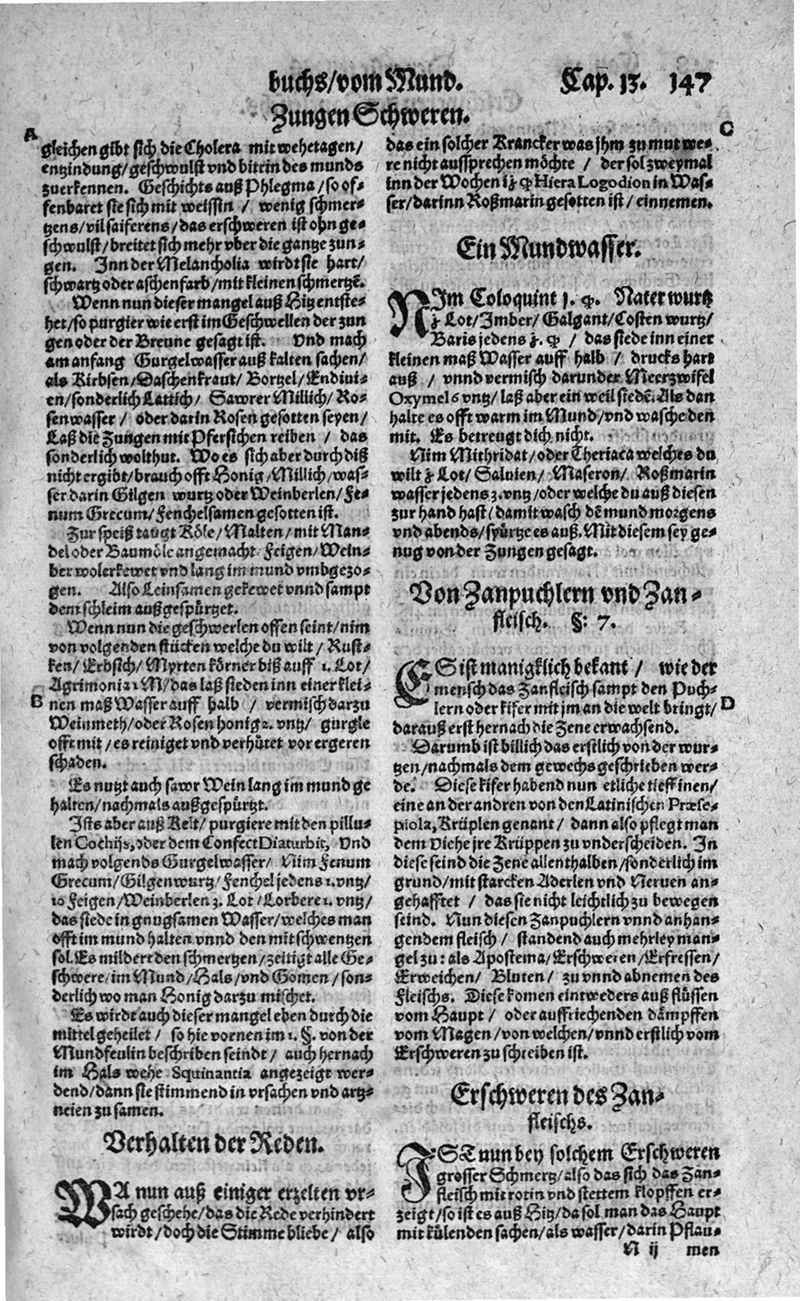 buchs/vom Mund. Cap. 13. 147
Zungen Schweren.
A
gleichen gibt sich die Cholera mit wehetagen/
entzindung/geschwulst vnd bitrin des munds
zuerkennen. Geschichts auß Phlegma/so of-
fenbaret sie sich mit weissin/ wenig schmer-
tzens/vil saiferens/das erschweren ist ohn ge-
schwulst/breitet sich mehr vber die gantze zun-
gen. Inn der Melancholia wirdt sie hart/
schwartz oder aschenfarb/mit kleinen schmertzẽ.
Wenn nun dieser mangel auß Hitz entste-
het/so purgier wie erst im Geschwellen der zun
gen oder der Breune gesagt ist. Vnd mach
am anfang Gurgelwasser auß kalten sachen/
als Kirbsen/Daschenkraut/Bortzel/Endiui-
en/sonderlich Lattich/ Sawrer Millich/Ro-
senwasser/ oder darin Rosen gesotten seyen/
Laß die Zungen mit Pfersichen reiben/ das
sonderlich wolthut. Wo es sich aber durch diß
nicht ergibt/brauch offt Honig/Millich/was-
ser darin Gilgen wurtz oder Weinberlen/Fe-
num Grecum/Fenchelsamen gesotten ist.
Zur speiß taugt Köle/Malten/mit Man-
del oder Baumöle angemacht/Feigen/Wein-
ber wolerkewet vnd lang im mund vmbgezo-
gen. Also Leinsamen gekewet vnnd sampt
dem schleim außgespürtzet.
Wenn nun die geschwerlen offen seint/nim
von volgenden stücken welche du wilt/Rust-
ken/Erbsich/Myrten körner biß auff 1. Lot/
Agrimonia 1 M/das laß sieden inn einer klei-
B
nen maß Wasser auff halb/ vermisch darzu
Weinmeth/oder Rosen honig 2. vntz/ gurgle
offt mit/es reiniget vnd verhütet vor ergeren
schaden.
Es nutzt auch sawr Wein lang im mund ge
halten/nachmals außgespürtzt.
Ists aber auß Kelt/purgiere mit den pillu-
len Cochijs, oder dem Confect Diaturbit, Vnd
mach volgends Gurgelwasser/ Nim Fenum
Grecum/Gilgenwurtz/Fenchel jedens 1. vntz/
10 Feigen/Weinberlen 3. Lot/Lorbere 1. vntz/
das siede in gnugsamen Wasser/welches man
offt im mund halten vnnd den mit schwentzen
sol. Es mildert den schmertzen/zeitigt alle Ge-
schwere/im Mund/Hals/vnd Gomen/son-
derlich wo man Honig darzu mischet.
Es wirdt auch dieser mangel eben durch die
mittel geheilet/ so hie vornen im 1. §. von der
Mundfeulin beschriben seindt/ auch hernach
im Hals wehe Squinantia angezeigt wer-
dend/dann sie stimmend in vrsachen vnd artz-
neien zu samen.
Verhalten der Reden.
WA nun auß einiger erzelten vr-
sach geschehe/das die Rede verhindert
wirdt/doch die Stimme bliebe/ also
C
das ein solcher Krancker was jhm zu mut we-
re nicht aussprechen möchte/ der sol zweymal
inn der Wochen Hiera Logodion in Was-
ser/darinn Roßmarin gesotten ist/einnemen.
Ein Mundwasser.
NIm Coloquint Naterwurtz
Lot/Imber/Galgant/Costen wurtz/
Baris jedens / das siede inn einer
kleinen maß Wasser auff halb/ drucks hart
auß/ vnnd vermisch darunder Meerzwifel
Oxymel 6 vntz/laß aber ein weil siedẽ. Als dan
halte es offt warm im Mund/vnd wasche den
mit. Es betreugt dich nicht.
Nim Mithridat/oder Theriaca welches du
wilt Lot/Saluien/Maseron/Roßmarin
wasser jedens 2. vntz/oder welche du auß diesen
zur hand hast/damit wasch dẽ mund morgens
vnd abends/spürtze es auß. Mit diesem sey ge-
nug von der Zungen gesagt.
Von Zanpuchlern vnd Zan-
fleisch. §: 7.
ES ist manigklich bekant/ wie der
mensch das Zanfleisch sampt den Puch-
lern oder kifer mit jm an die welt bringt/
D
darauß erst hernach die Zene erwachsend.
Darumb ist billich das erstlich von der wur-
tzen/nachmals dem gewechs geschrieben wer-
de. Diese kifer habend nun etliche tieffinen/
eine an der andren von den Latinischen Præse-
piola, Krüplen genant/ dann also pflegt man
dem Viehe jre Krüppen zu vnderscheiden. In
diese seind die Zene allenthalben/sonderlich im
grund/mit starcken Aderlen vnd Neruen an-
gehafftet/ das sie nicht leichtlich zu bewegen
seind. Nun diesen Zanpuchlern vnnd anhan-
gendem fleisch/ standend auch mehrley man-
gel zu: als Apostema/Erschweren/Erfressen/
Erweichen/ Bluten/ zu vnnd abnemen des
Fleischs. Diese komen eintweders auß flüssen
vom Haupt/ oder auffriechenden dämpffen
vom Magen/von welchen/vnnd erstlich vom
Erschweren zu schreiben ist.
Erschweren des Zan-
fleischs.
IST nun bey solchem Erschweren
grosser Schmertz/also das sich das Zan-
fleisch mit rotin vnd stettem klopffen er-
zeigt/so ist es auß Hitz/da sol man das Haupt
mit külenden sachen/als wasser/darin Pflau-
N ij men